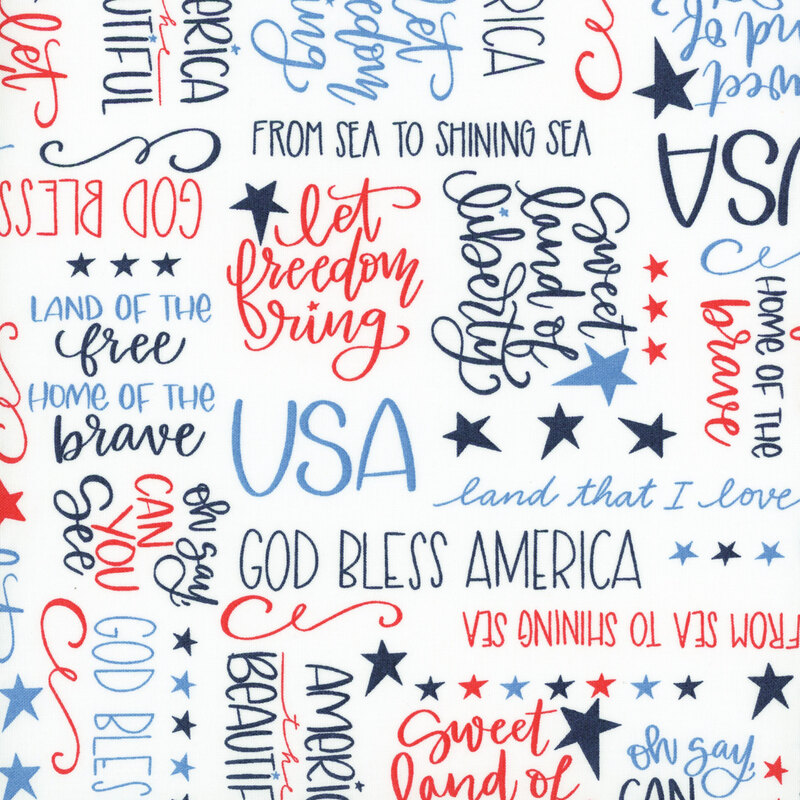 let
AMERICA
the
BEAUTIFUL
freedom
ring
let
ERICA
Sweet
land of
FROM SEA TO SHINING SEA
USA
GOD BLESS
let
freedom
ring
Sweet
land of
liberty
LAND OF THE
free
HOME OF THE
brave
HOME OF THE
brave
USA
land that I love
oh say,
CAN
YOU
See
GOD BLESS AMERICA
FROM SEA TO SHINING SEA
GOD BLES
AMERI
the
BEAUTIF
Sweet
land of
oh say,
CAN